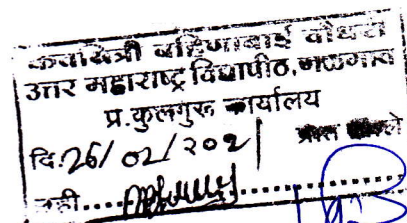 कवयित्री बहिणाबाई चौधरी
उत्तर महाराष्ट्र विद्यापीठ, जळगाव
प्र.कुलगुरू कार्यालय
दि.26/02/202
सही